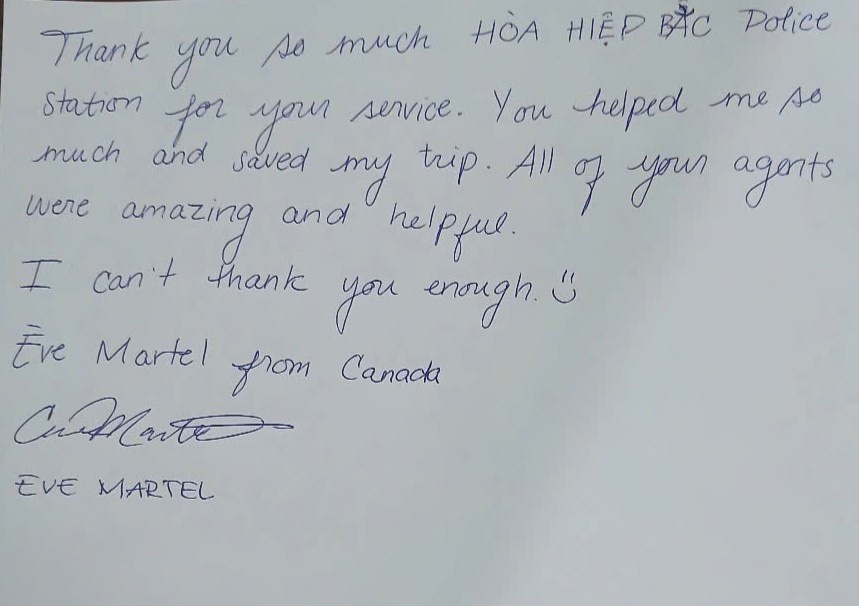 Thank you so much HÒA HIỆP BẮC Police
Station for your service. You helped me so
much and saved my trip. All of your agents
were amazing and helpful.
I can't thank you enough. :)
Ēve Martel from Canada
ĒVE MARTEL